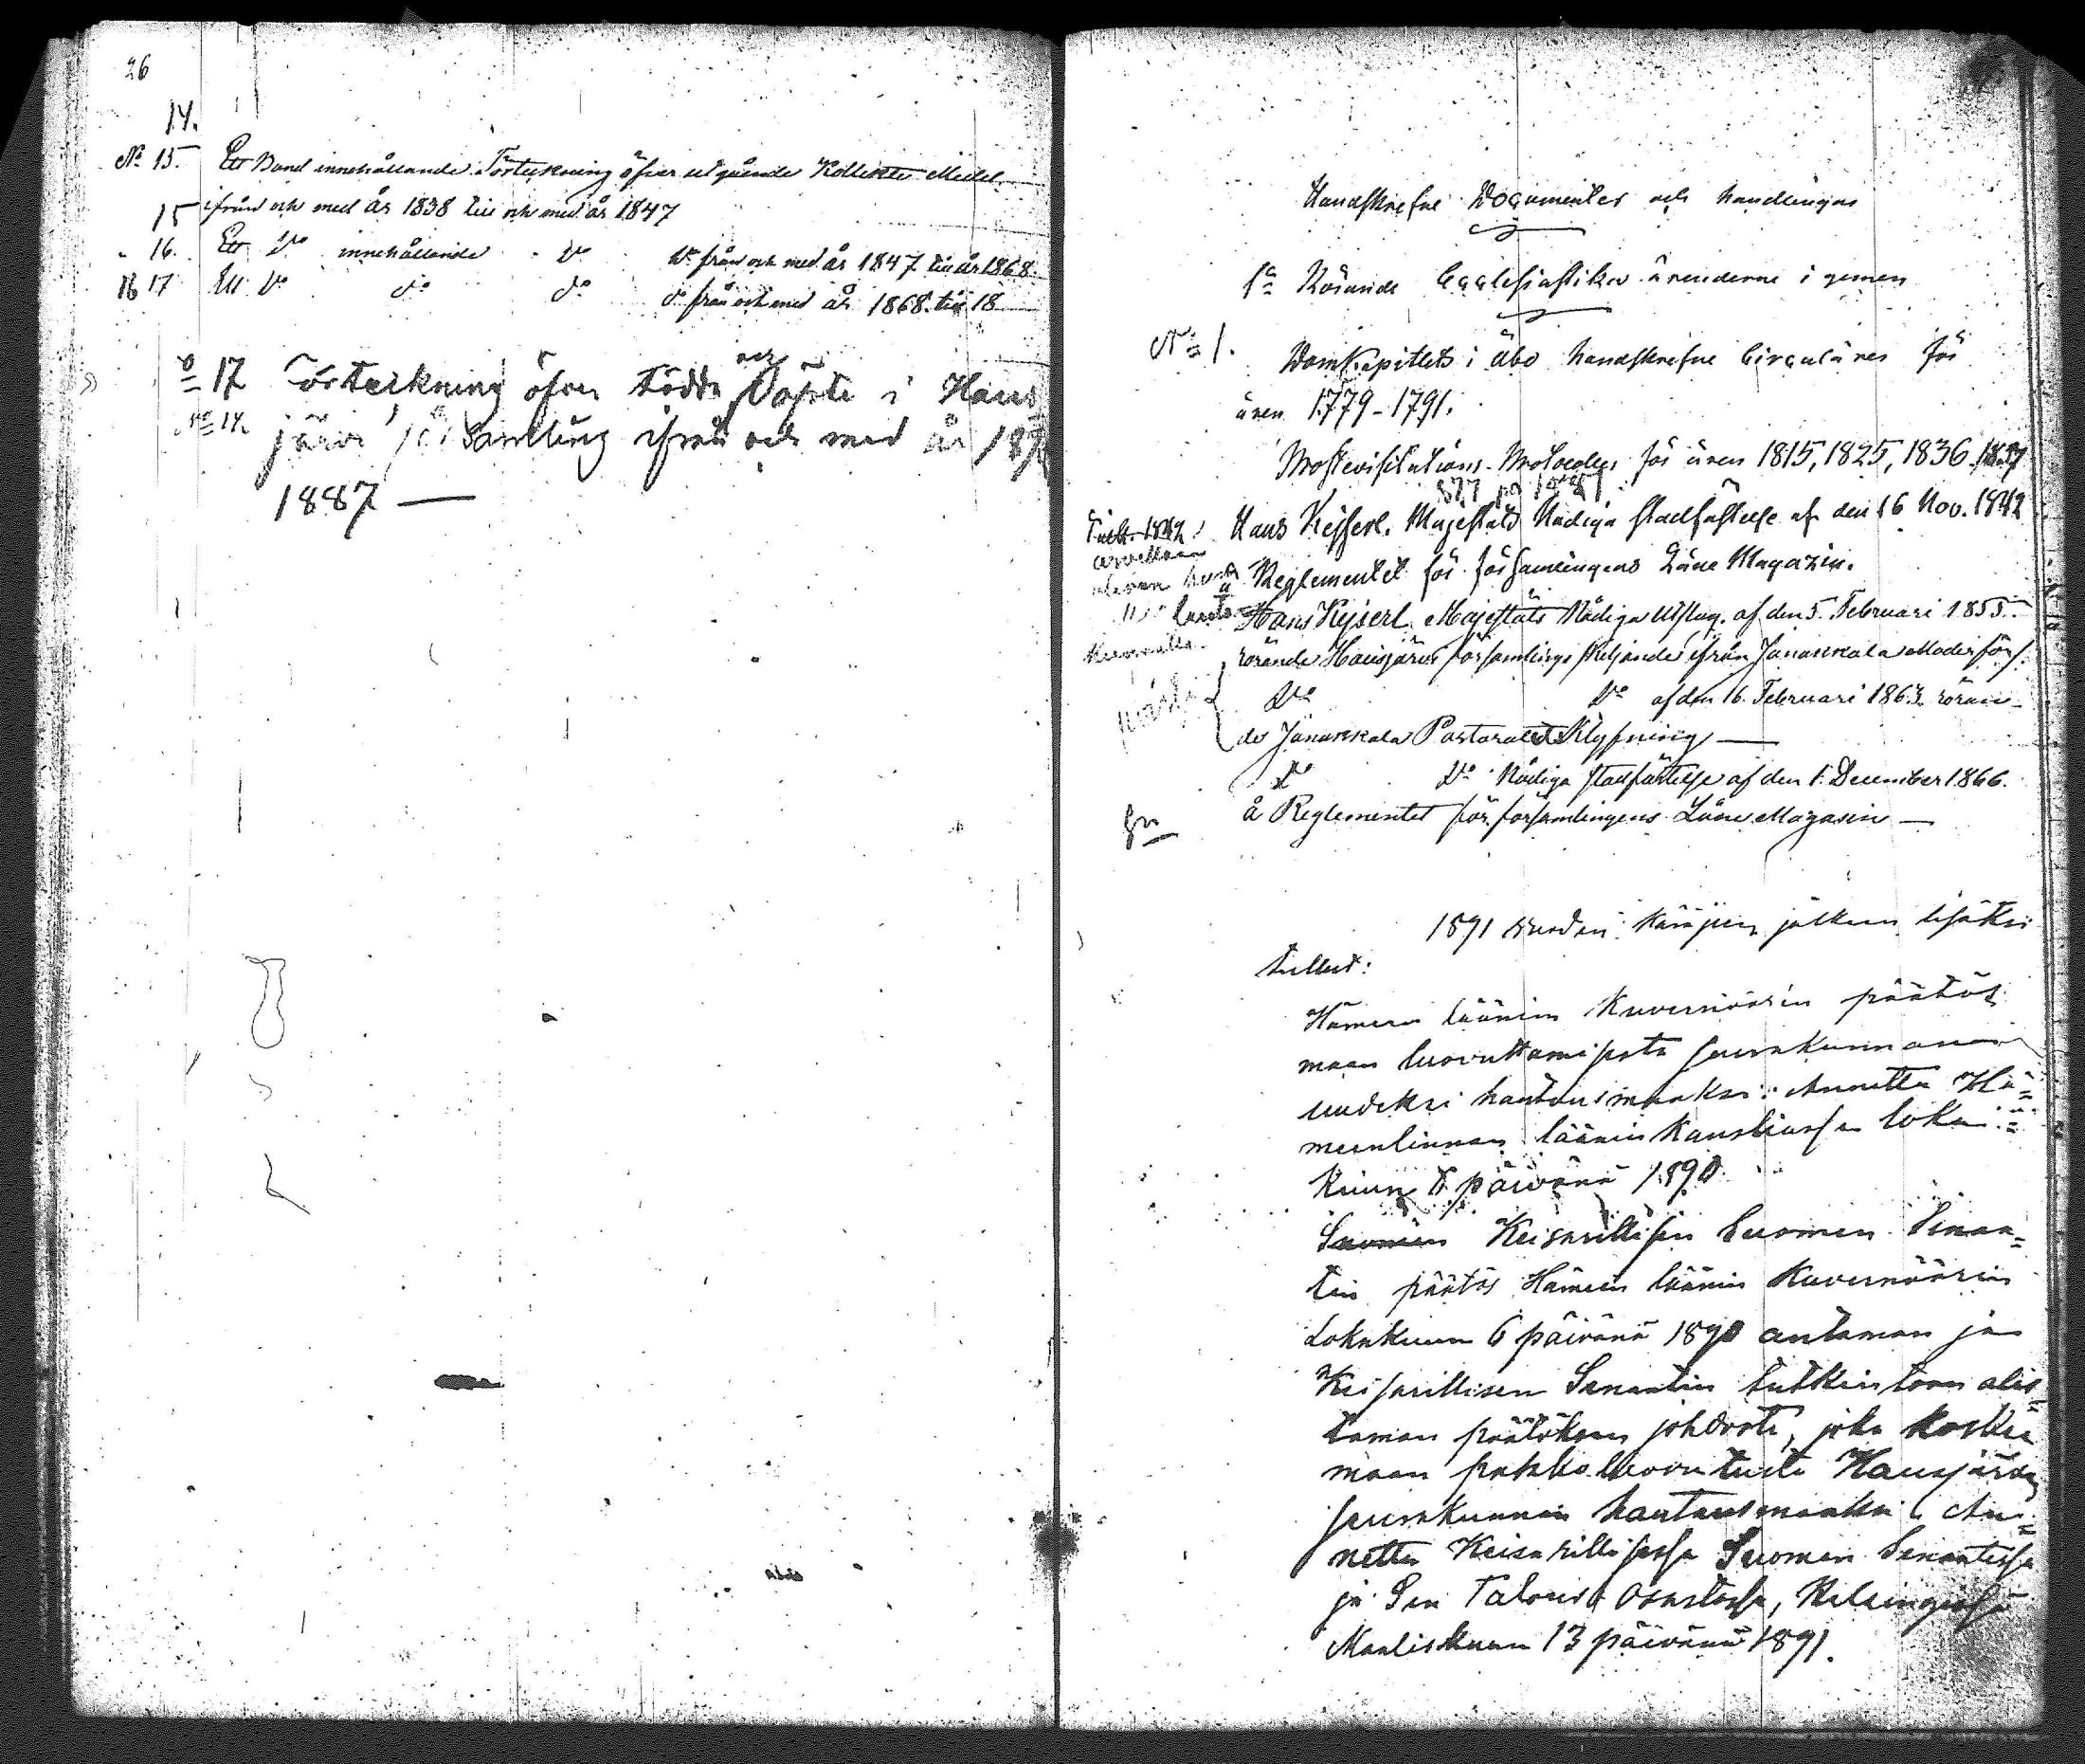 26
14.
No 15. Ett Band innehållande Förteckning öfver utgående Kollekte Medel
15 ifrån och med år 1838 till och med år 1847
" 16. Ett Do innehållande Do Do från och med år 1847 till år 1868.
16 17 Ett Do do do do från och med år 1868. till 18—
No 17 Förteckning öfver födda och Döpte i Haus
No 17. järvi församling ifrån och med år 18
1887 —
Handskrefne Documenter och handlingar
1o Rörande Ecclesiastike ärenderne i gemen
No 1. Domkapitlets i Åbo handskrefne Circulärer för
åren 1779-1791.
Prostevisitations-Protocoller för åren 1815, 1825, 1836. 1857
877 på 1881
Hans Kejserl. Majestäts Nådiga stadfästelse af den 16 Nov. 1842
å Reglementet för församlingens Låne Magazin.
Hans Kejserl. Majestäts Nådiga Utslag. af den 5. Februari 1855.
rörande Hausjärvi församlings skiljande ifrån Janakkala Moderförs.
Do Do af den 16. Februari 1863. röran-
de Janakkala Pastorats Klyfning —
Do Do Nådiga stadfästelse af den 1. December 1866.
å Reglementet för församlingens Låne Magasin —
1891 vuoden käräjien jälkeen lisäksi
tullut:
Hämeen läänin Kuvernöörin päätös
maan luovuttamisesta seurakunnan
uudeksi hautausmaaksi: Annettu Hä=
meenlinnan läänin kansliassa loka=
kuun 6 päivänä 1890.
Suomen Keisarillisen Suomen Senaa=
tin päätös Hämeen läänin Kuvernöörin
Lokakuun 6 päivänä 1890 antaman ja
Keisarillisen Senaatin tutkintoon alis=
taman päätöksen johdosta, joka koskee
maan pakkoluovutusta Hausjärven
seurakunnan hautausmaaksi. An=
nettu Keisarillisessa Suomen Senaatissa
ja Sen Talous Osastossa, Helsingissä
Maaliskuun 13 päivänä 1891.